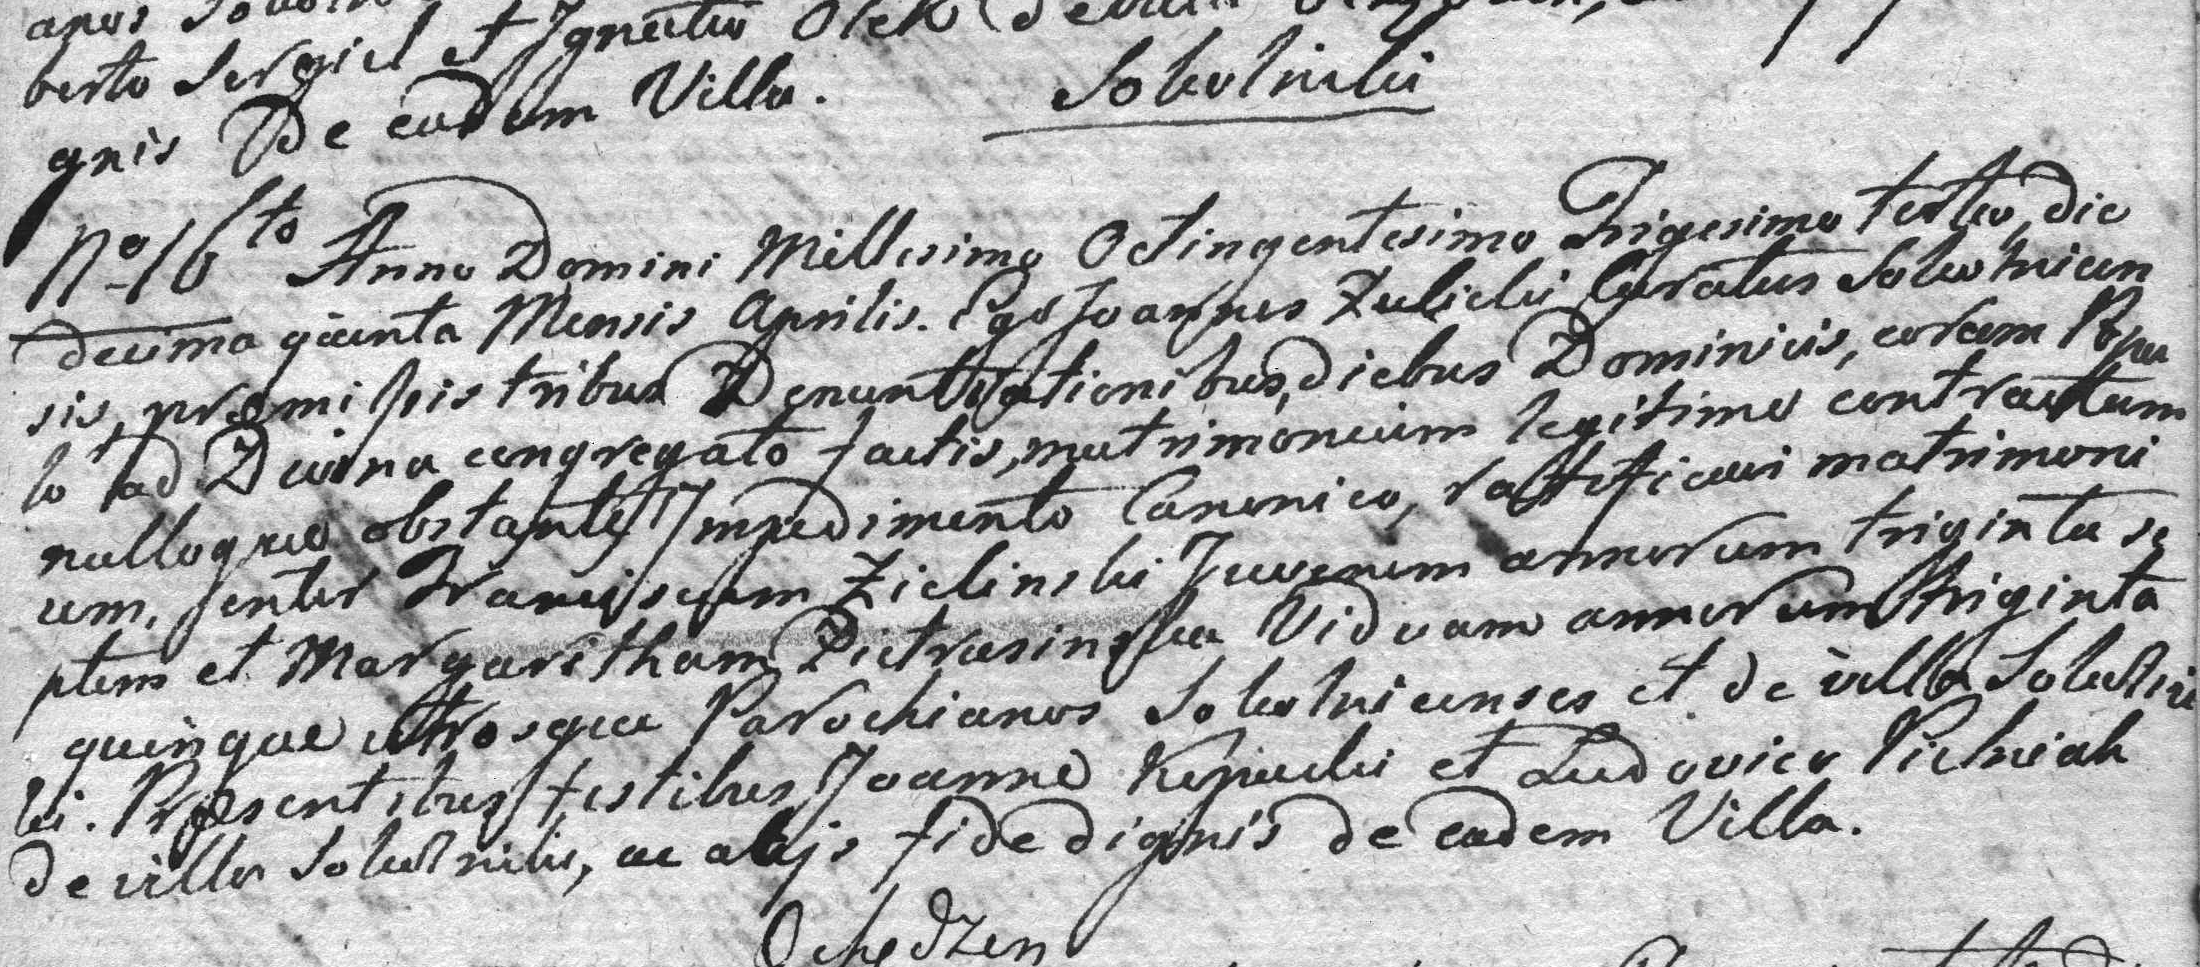 berto Sergiel et Ignatio Olek
gnis De eadem Villa.
Sokolniki
No 16to Anno Domini Millesimo Octingentesimo Trigesimo tertio, die
decima quinta Mensis Aprilis. Ego Joannes Zulicki Curatus Sokolnicen
sis, præmissis tribus Denuntiationibus, diebus Dominicis, coram Popu
lo ad Divina congregato factis, matrimonium legitime contractum
nulloque obstante Impedimento Canonico, ratificavi matrimoni
um, inter Franciscum Zielinski Juvenem annorum triginta se
ptem et Margaritham Pietrasinska Viduam annorum triginta
quinque utrosque Parochianos Sokolnicenses et de villa Sokolni
ki. Præsentibus testibus Joanne Kepucki et Ludovico Pichniak
de villa Sokolniki, ac alijs fide dignis de eadem Villa.
Ochędzen